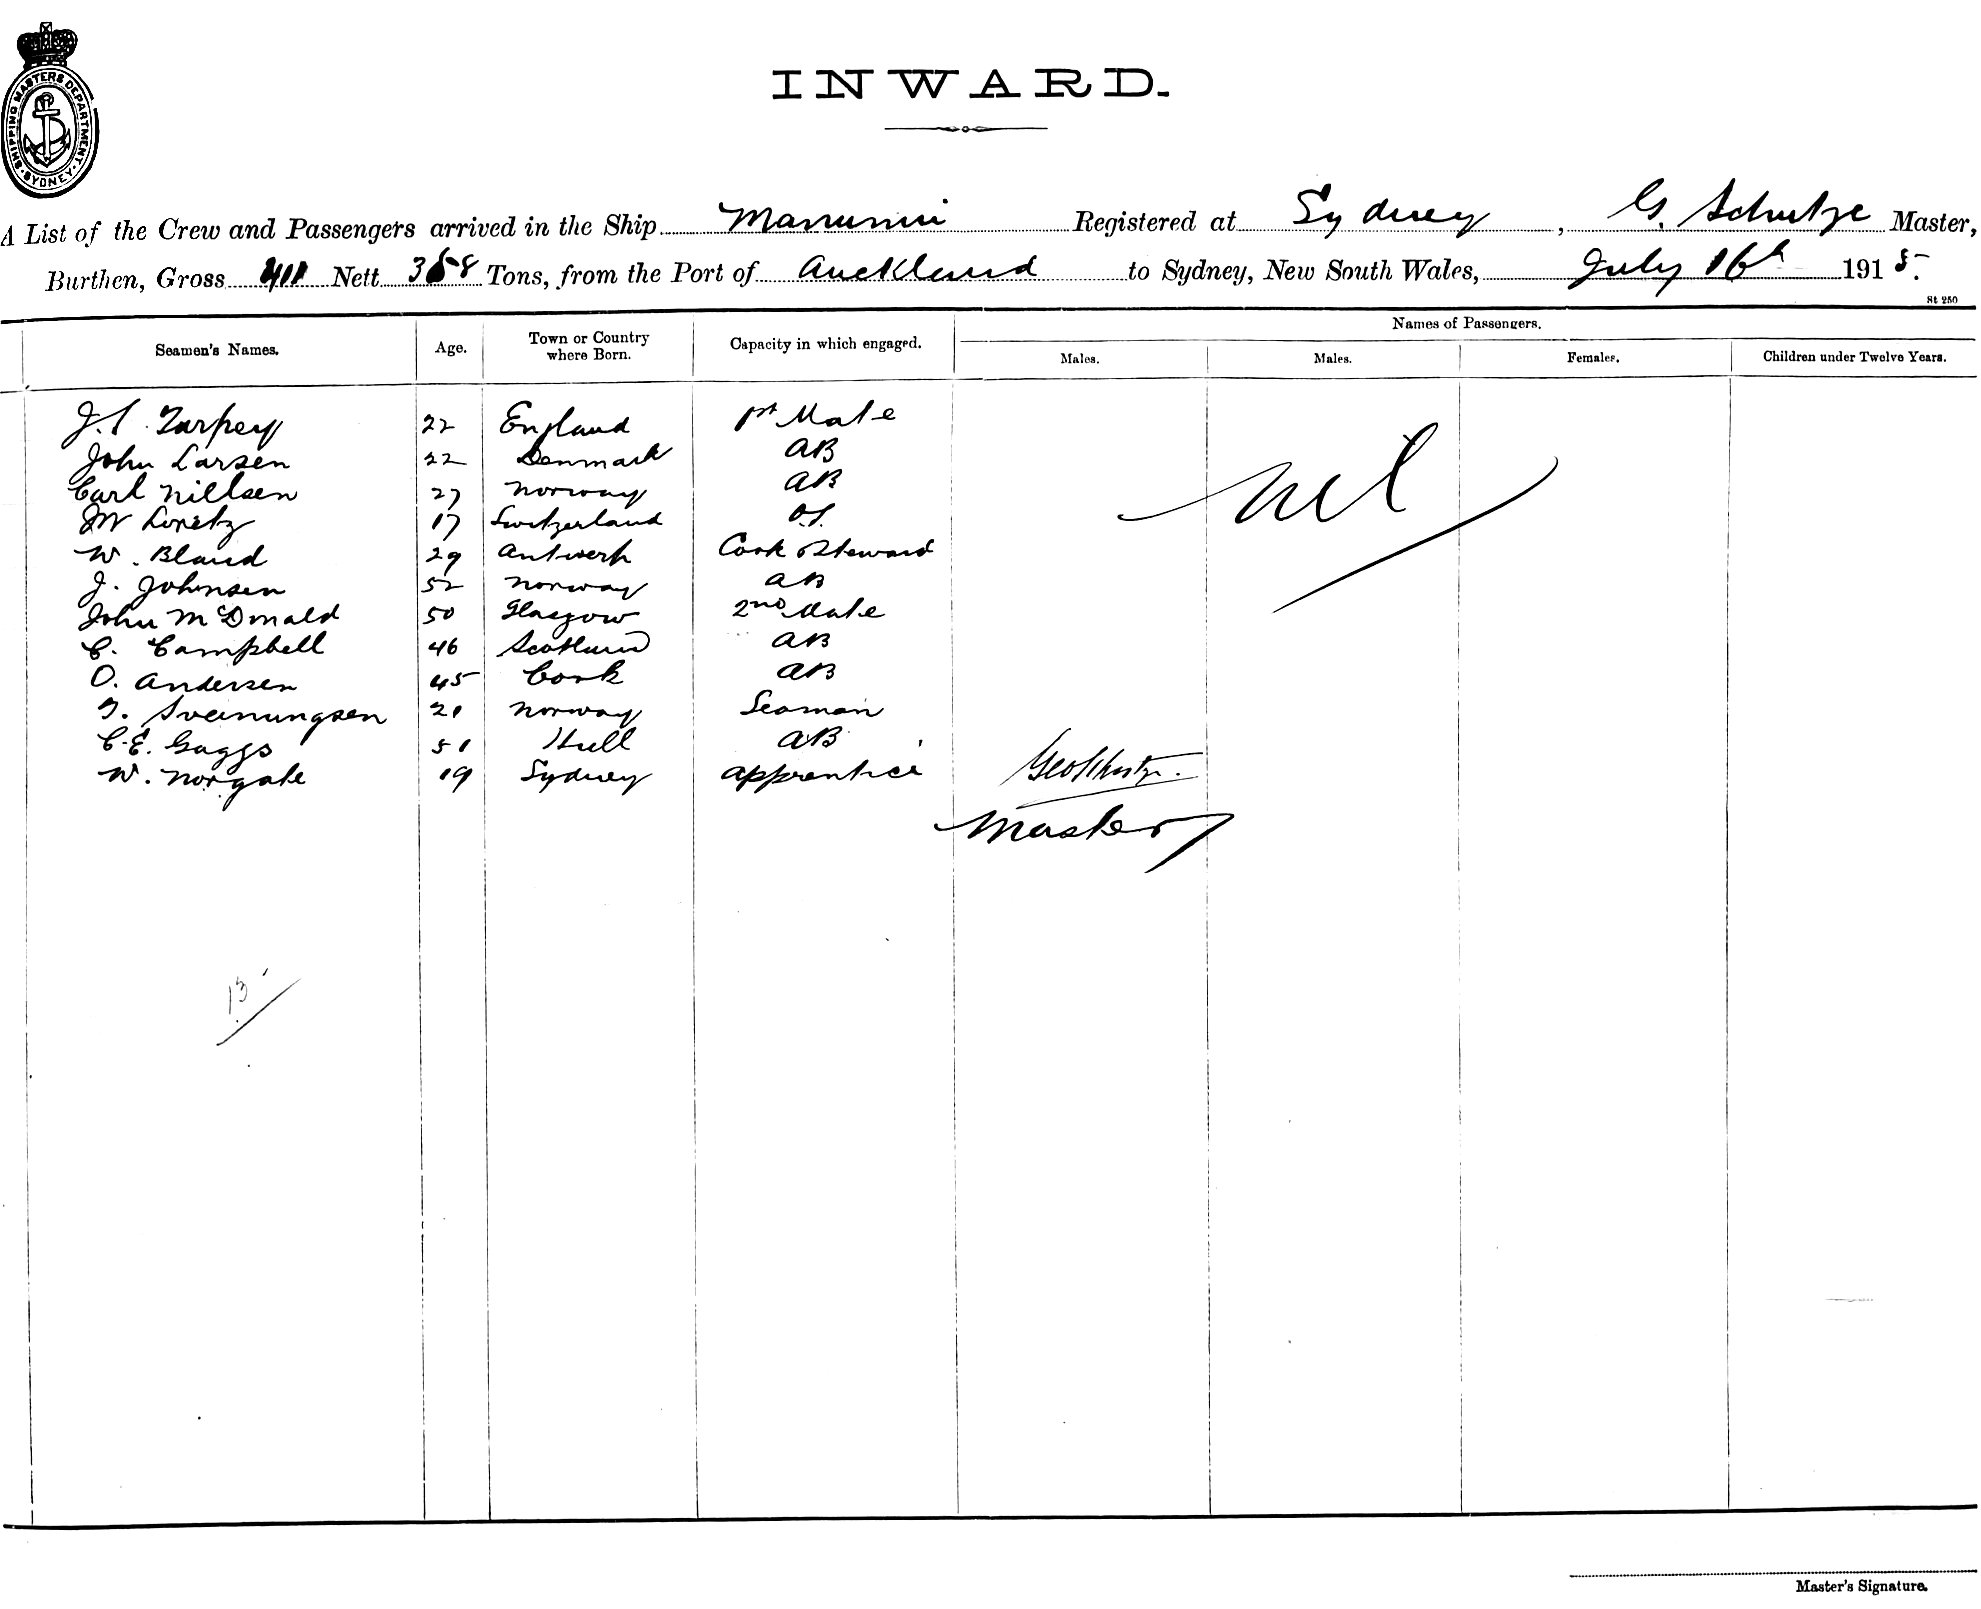 SHIPPING MASTERS DEPARTMENT. SYDNEY.
INWARD.
A List of the Crew and Passengers arrived in the Ship Registered at Sydney, G. Schutze Master,
Burthen, Gross 411 Nett Tons, from the Port of Auckland to Sydney, New South Wales, July 16th 1915.
St 250
Seamen's Names. Age. Town or Country where Born. Capacity in which engaged. Names of Passengers.
Males. Males. Females. Children under Twelve Years.
J.S. Tarpey 22 England 1st Mate
John Larsen 22 Denmark AB
Carl Nillsen 27 Norway AB
Loretz 17 Switzerland O.S.
W. Bland 29 Antwerp Cook & Steward
J. Johnsen 52 Norway AB
John McDonald 50 Glasgow 2nd Mate
C. Campbell 46 Scotland AB
O. Andersen 45 Cork AB
T. Sveinungsen 21 Norway Seaman
C.E. Gaggs 51 Hull AB
W. Norgate 19 Sydney apprentice
Nil
Geo Schutze.
Master
13
Master's Signature.